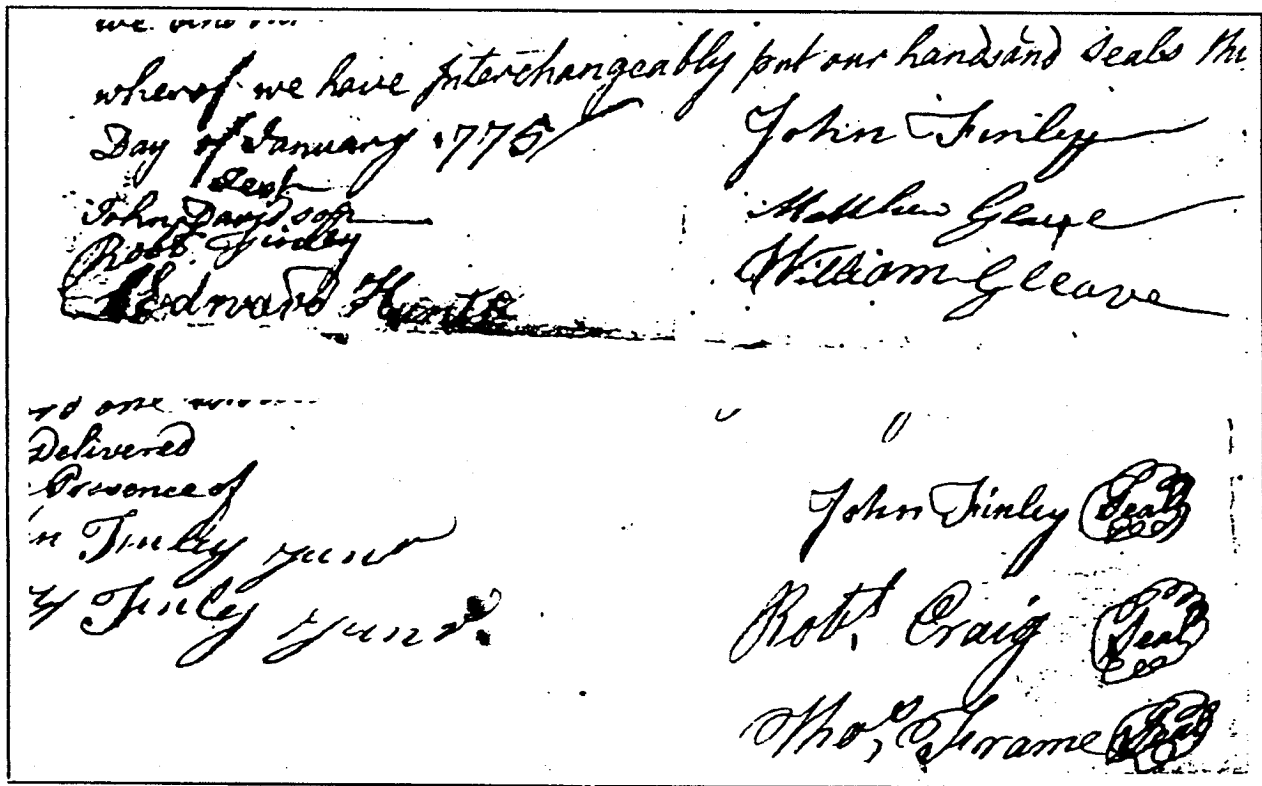 whereof we have Interchangeably put our hands and Seals
Day of January 1775
Test
John Davidson
Robt. Finley
Edward Hunter
John Finley
Matthew Gleave
William Gleave
Delivered
Presence of
Finley Junr
Finley Junr.
John Finley Seal
Robt. Craig Seal
Thos. Frame Seal